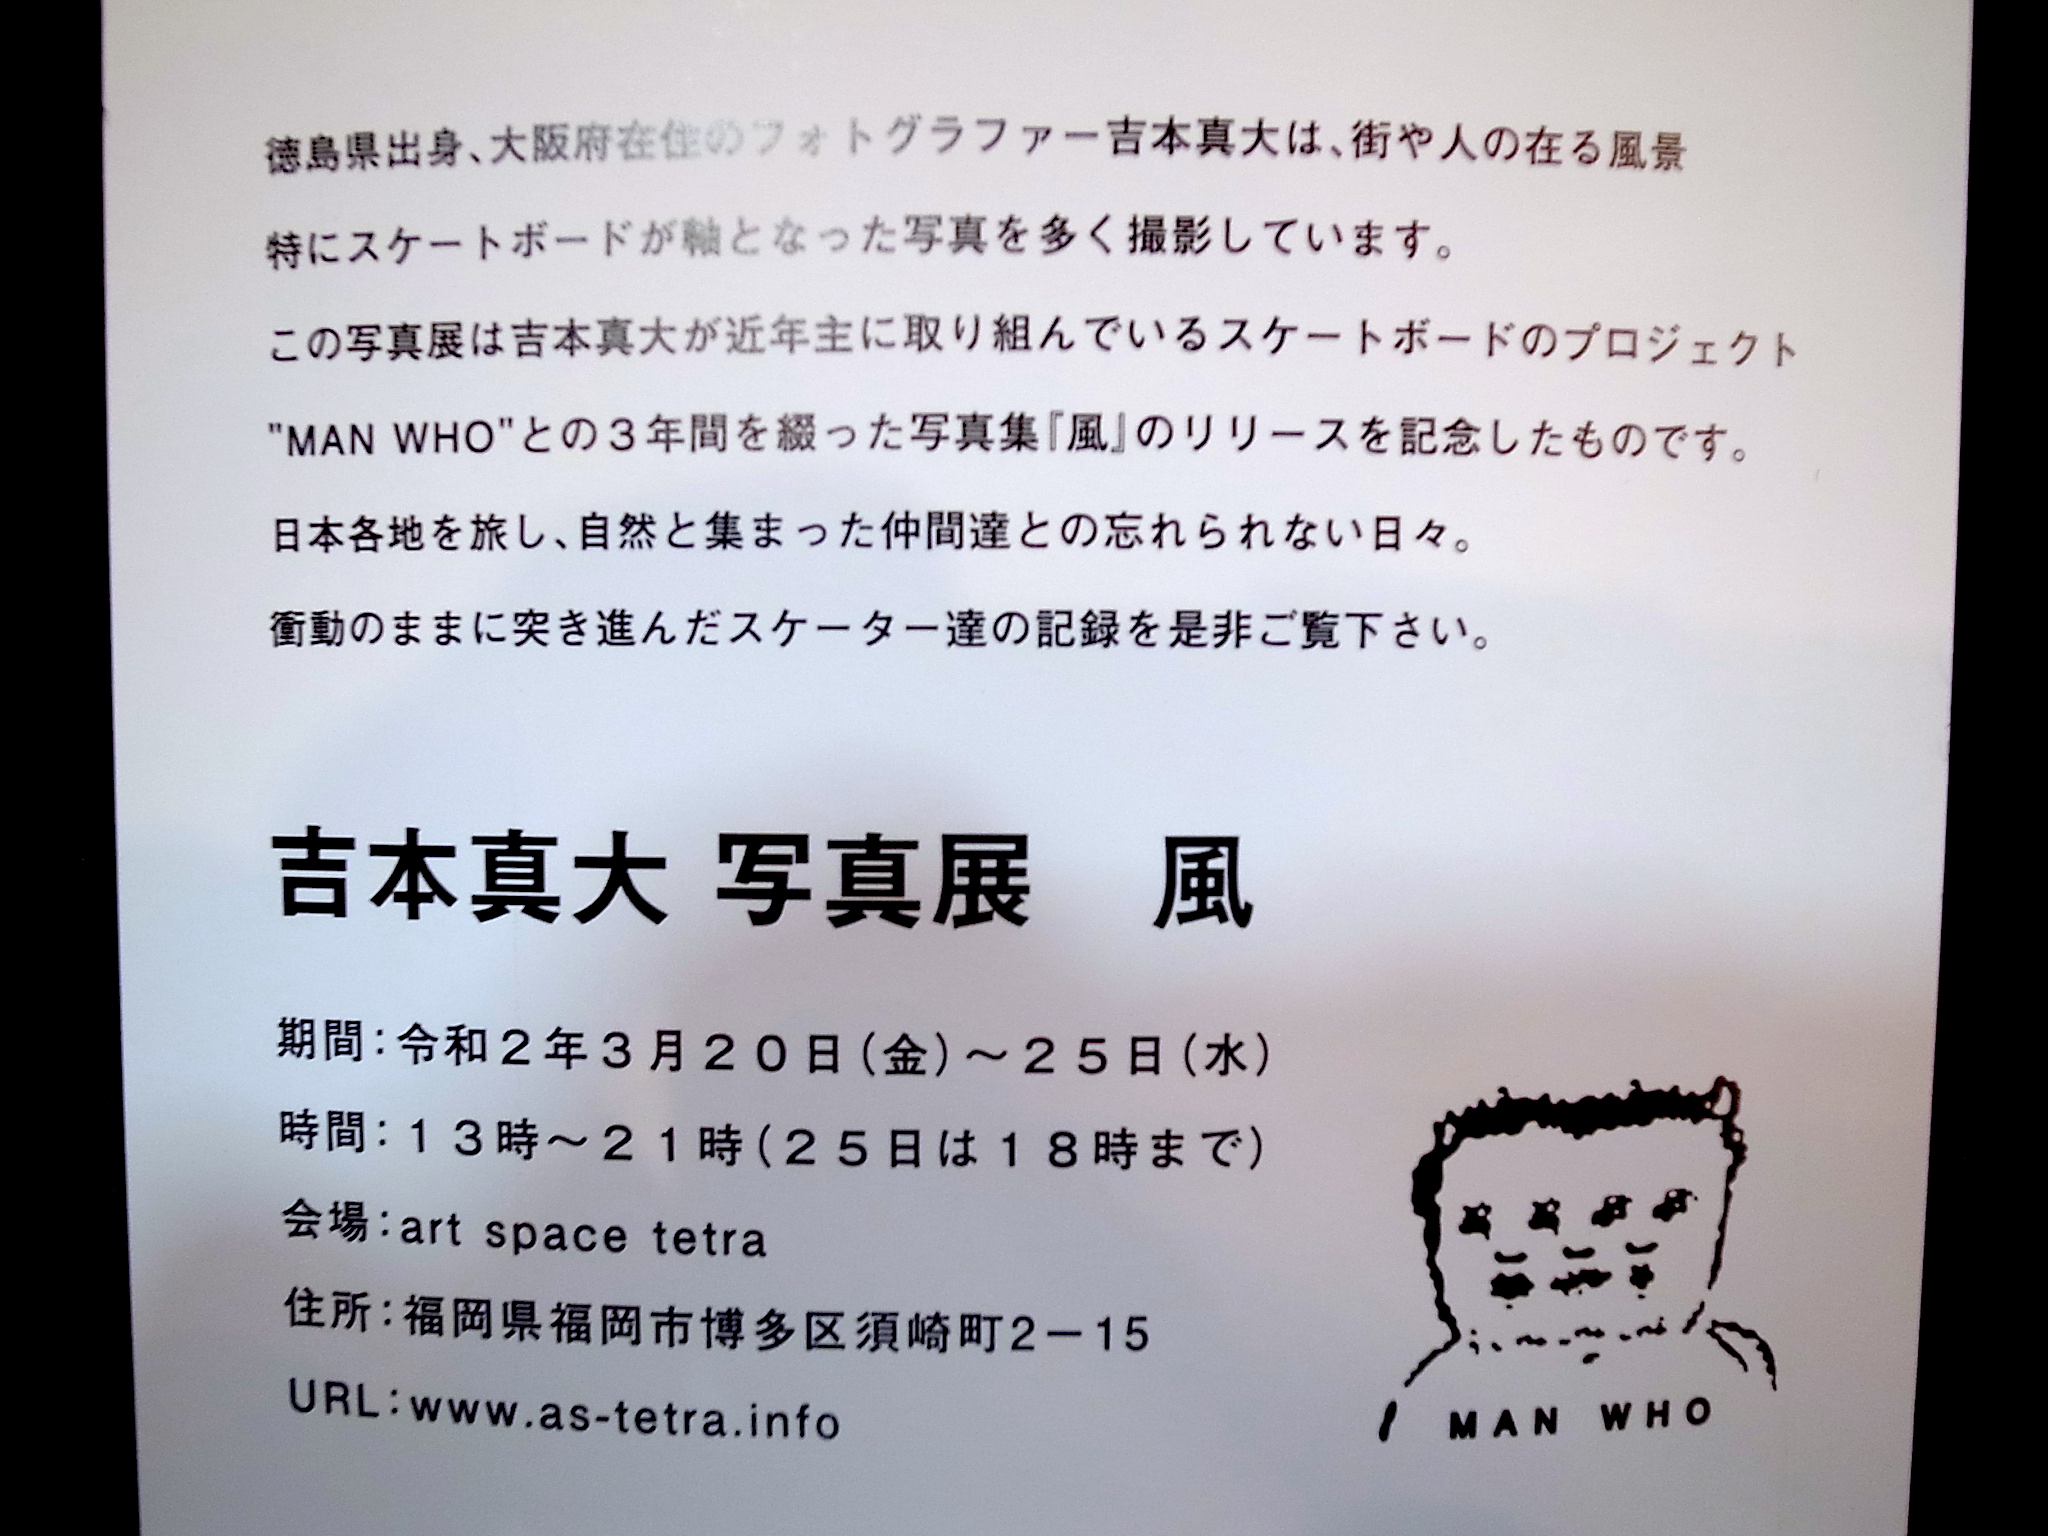 徳島県出身、大阪府在住のフォトグラファー吉本真大は、街や人の在る風景
特にスケートボードが軸となった写真を多く撮影しています。
この写真展は吉本真大が近年主に取り組んでいるスケートボードのプロジェクト
"MAN WHO"との３年間を綴った写真集『風』のリリースを記念したものです。
日本各地を旅し、自然と集まった仲間達との忘れられない日々。
衝動のままに突き進んだスケーター達の記録を是非ご覧下さい。
吉本真大 写真展　風
期間：令和２年３月２０日（金）～２５日（水）
時間：１３時～２１時（２５日は１８時まで）
会場：art space tetra
住所：福岡県福岡市博多区須崎町2－15
URL：www.as-tetra.info
MAN WHO